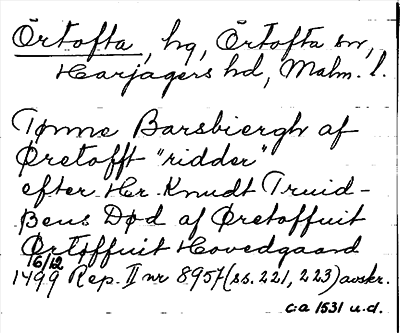 Örtofta, hg, Örtofta sn,
Harjagers hd, Malm. l.
Tønne Barsbiergh af
Øretofft "ridder"
efter Hr. Knudt Truid-
Bens Død af Øretoffuit
Ørtøffuit Hovedgaard
16/12
1499 Rep. II nr 8957 (ss. 221, 223) avskr.
ca 1531 u.d.